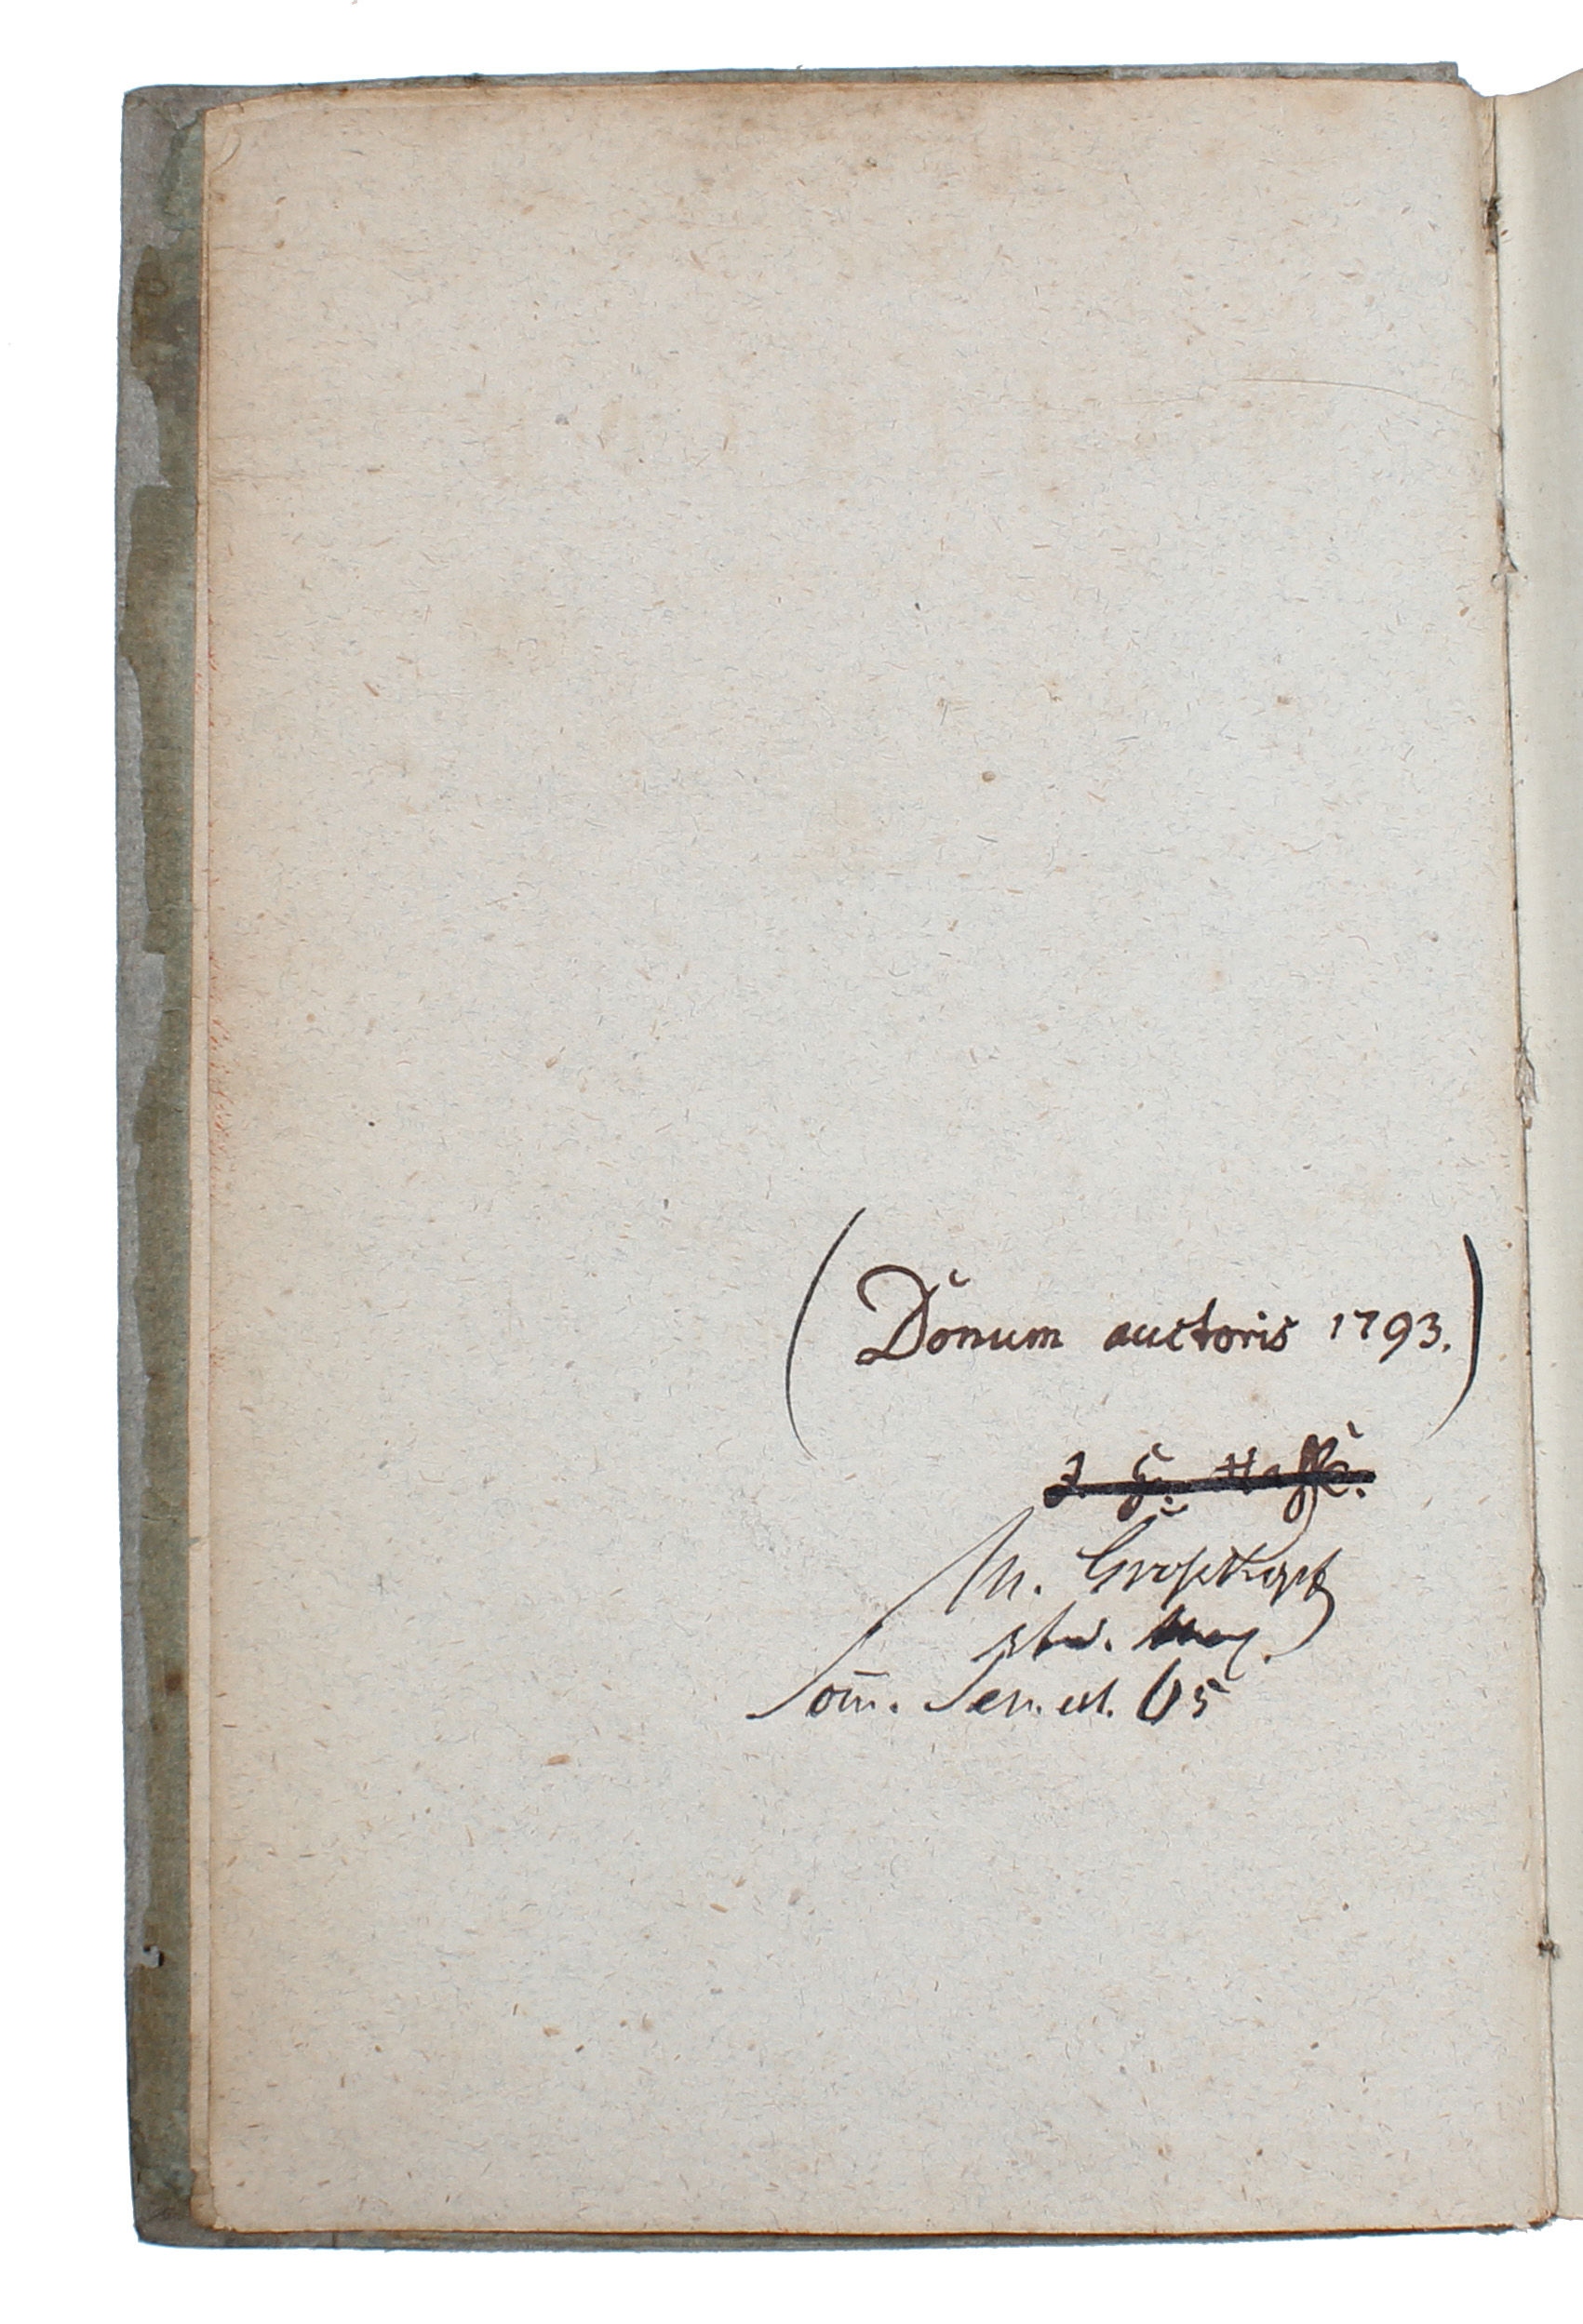 (Donum auctoris 1793.)
J. G. Hasse.
M. Großkopf
stud.
Som̅. Semest. 65